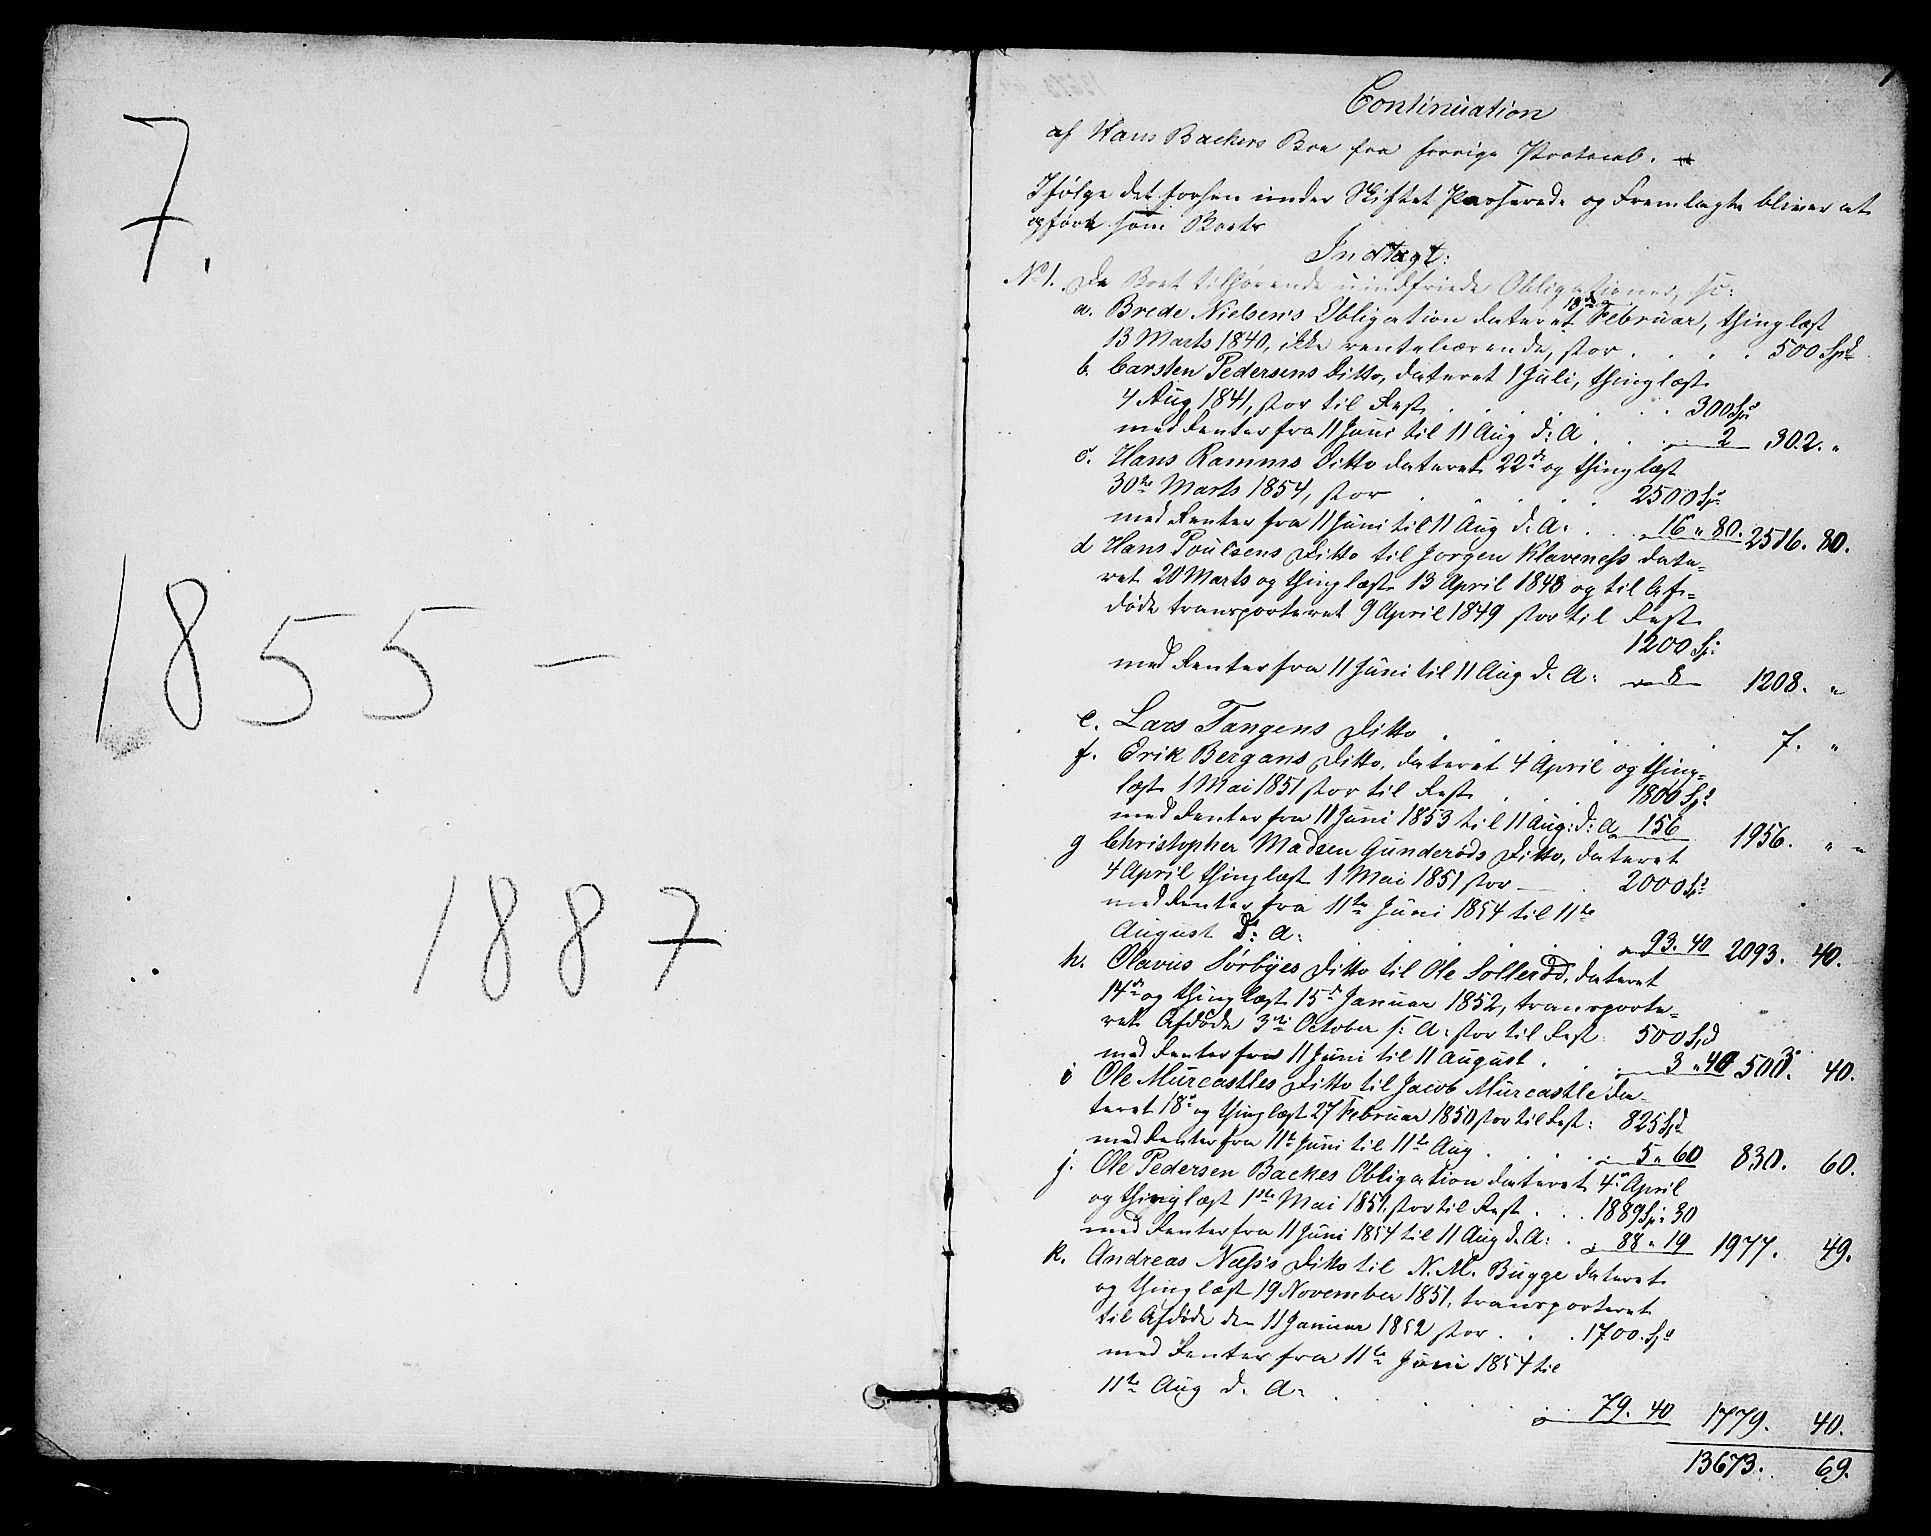 7.
1855 –
1887
Continuation
af Hans Backers Boe fra forrige Protocol.
Ifølge det forhen under Skiftet Passerede og Fremlagte bliver at
opføre som Boets
Indtægt:
No 1. De Boet tilhørende uindfriede Obligationer, sc:
a. Brede Nielsens Obligation dateret 18de Februar, thinglæst
13 Marts 1840, ikke rentebærende, stor . . . . 500 Spd
b. Carsten Pedersens Ditto, dateret 1 Juli, thinglæst
4 Aug 1841, stor til Rest . . . . . . 300 Spd
med Renter fra 11 Juni til 11 Aug d: A . . . 2 302. "
c. Hans Ramms Ditto dateret 22de og thinglæst
30te Marts 1854, stor . . . . . 2500 Spd
med Renter fra 11 Juni til 11 Aug d. A: . . 16 " 80. 2516. 80.
d Hans Poulsens Ditto til Jørgen Klaveness date=
ret 20 Marts og thinglæst 13 April 1848 og til Af=
døde transporteret 9 April 1849 stor til Rest
1200 Sp:
med Renter fra 11 Juni til 11 Aug d. A: 8 1208. "
e. Lars Tangens Ditto . . . . . . 7. "
f. Erik Bergans Ditto, dateret 4 April og thing=
læst 1 Mai 1851 stor til Rest . . . 1800 Spd
med Renter fra 11 Juni 1853 til 11 Aug: d: A 156 1956. " "
g Christopher Madsen Gunderøds Ditto, dateret
4 April thinglæst 1 Mai 1851 stor — . 2000 Spd
med Renter fra 11te Juni 1854 til 11te
August d: A: . . . . . 93. 40 2093. 40.
h. Olavus Sørbyes Ditto til Ole Sollerød, dateret
14de og thinglæst 15de Januar 1852, transporte=
ret Afdøde 3die October s: A: stor til Rest 500 Spd
med Renter fra 11 Juni til 11 August . . 3 " 40 503. 40.
i Ole Murcastles Ditto til Jacob Murcastle da=
teret 18de og thinglæst 27 Februar 1850 stor til Rest: 825 Spd
med Renter fra 11te Juni til 11te Aug . . . . 5 " 60 830. 60.
j. Ole Pedersen Backes Obligation dateret 4de April
og thinglæst 1ste Mai 1851 stor til Rest . . . 1889 Sp: 30
med Renter fra 11 Juni 1854 til 11 Aug d. A: . 88 " 19 1977. 49.
k. Andreas Næss's Ditto til N. M. Bugge dateret
og thinglæst 19 November 1851, transporteret
til Afdøde den 11 Januar 1852 stor . . . 1700. Spd
med Renter fra 11te Juni 1854 til
11te Aug d. A: . . . . . 79. 40 1779. 40.
13673. 69.